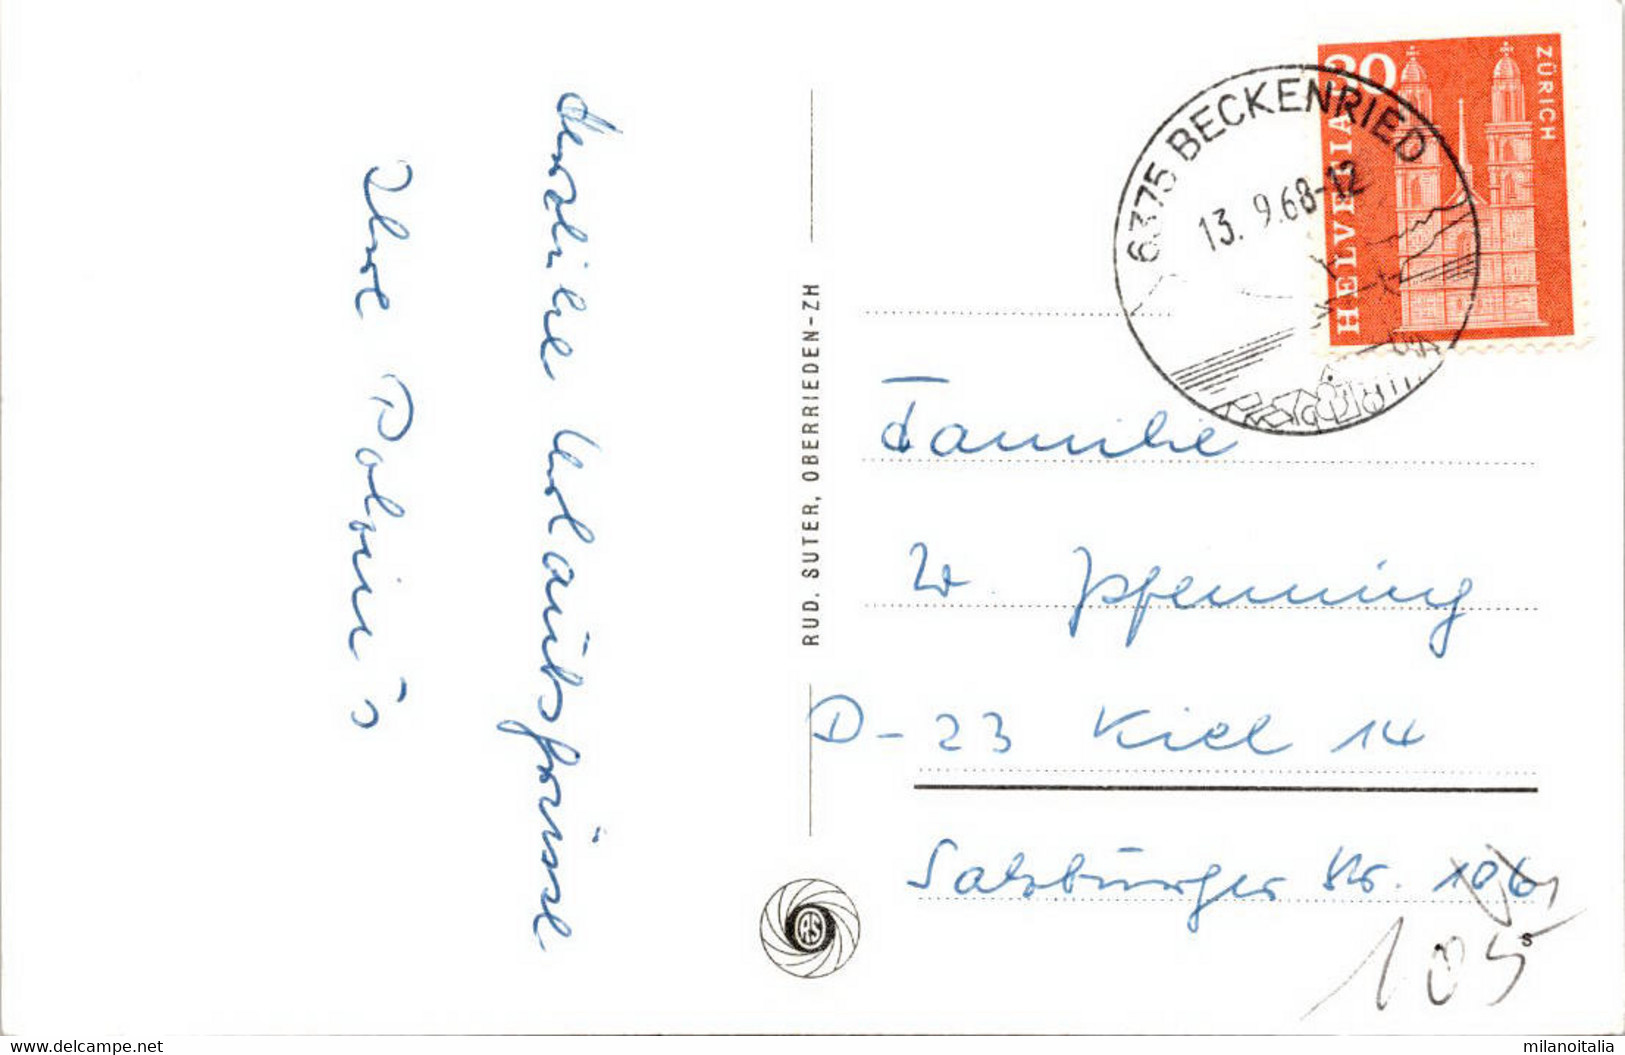 Herzliche Urlaubsgrüsse
Ihre
RUD. SUTER, OBERRIEDEN-ZH
RS
6375 BECKENRIED
13. 9.68-12
30
HELVETIA
ZÜRICH
Familie
W. Pfenning
D-23 Kiel 14
Salzburger Str. 106
105
s
www.delcampe.net
milanoitalia